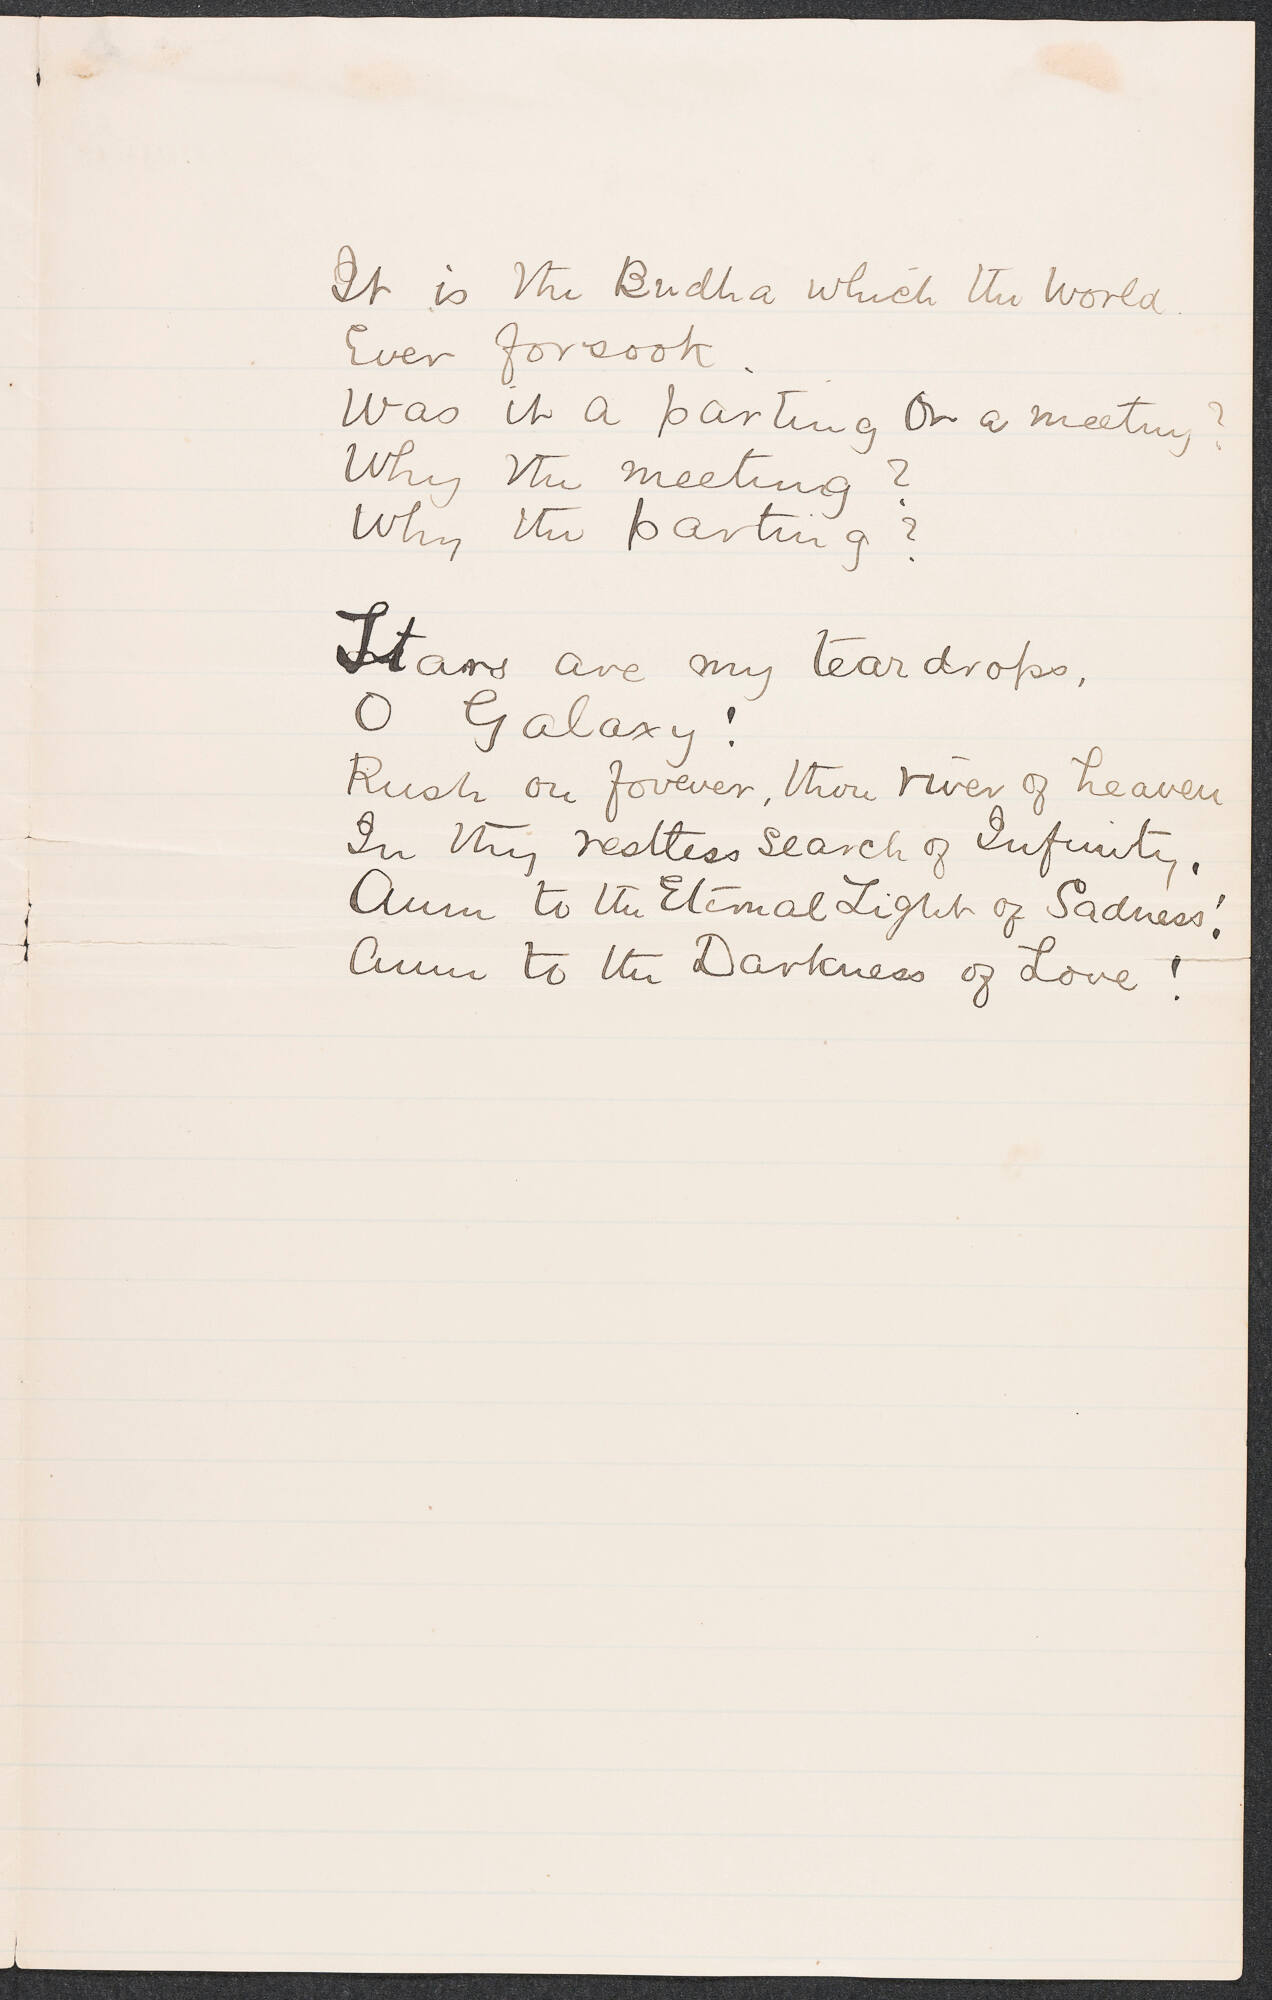 It is the Budha which the World
Ever forsook.
Was it a parting Or a meeting?
Why the meeting?
Why the parting?
Stars are my teardrops,
O Galaxy!
Rush on forever, thou river of heaven
In thy restless search of Infinity.
Aum to the Eternal Light of Sadness!
Aum to the Darkness of Love!